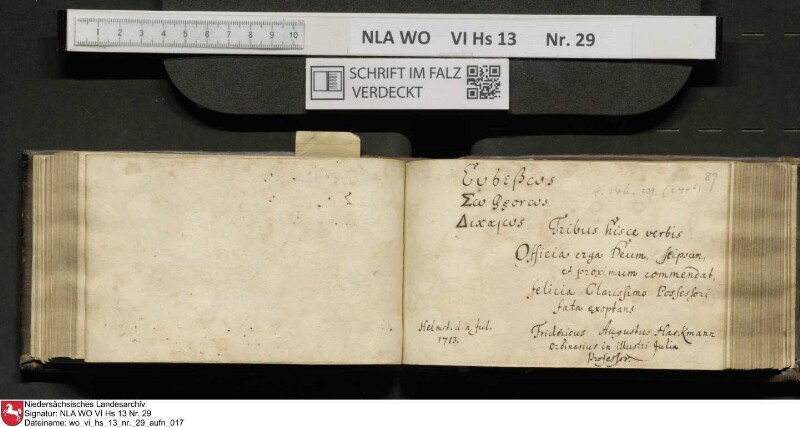 1 2 3 4 5 6 7 8 9 10
NLA WO VI Hs 13 Nr. 29
SCHRIFT IM FALZ
VERDECKT
89
Ευσεβως
Σωφρονως
Δικαιως
Tribus hisce verbis
Officia erga Deum, seipsum,
et proximum commendat,
felicia Clarissimo Possessori
fata exoptans
Helmst. d. Jul.
1713.
Fridericus Augustus Hackmann
Ordinarius in illustri Julia
Professor.
Niedersächsisches Landesarchiv
Signatur: NLA WO VI Hs 13 Nr. 29
Dateiname: wo_vi_hs_13_nr._29_aufn_017